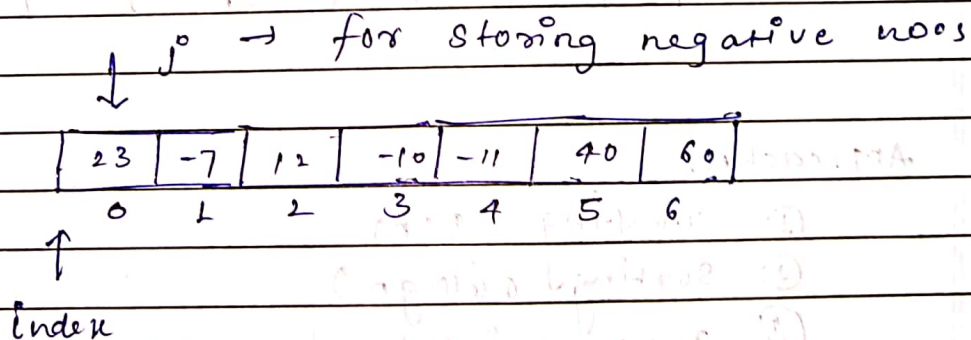 j → for storing negative noos
23 -7 12 -10 -11 40 60
0 1 2 3 4 5 6
index